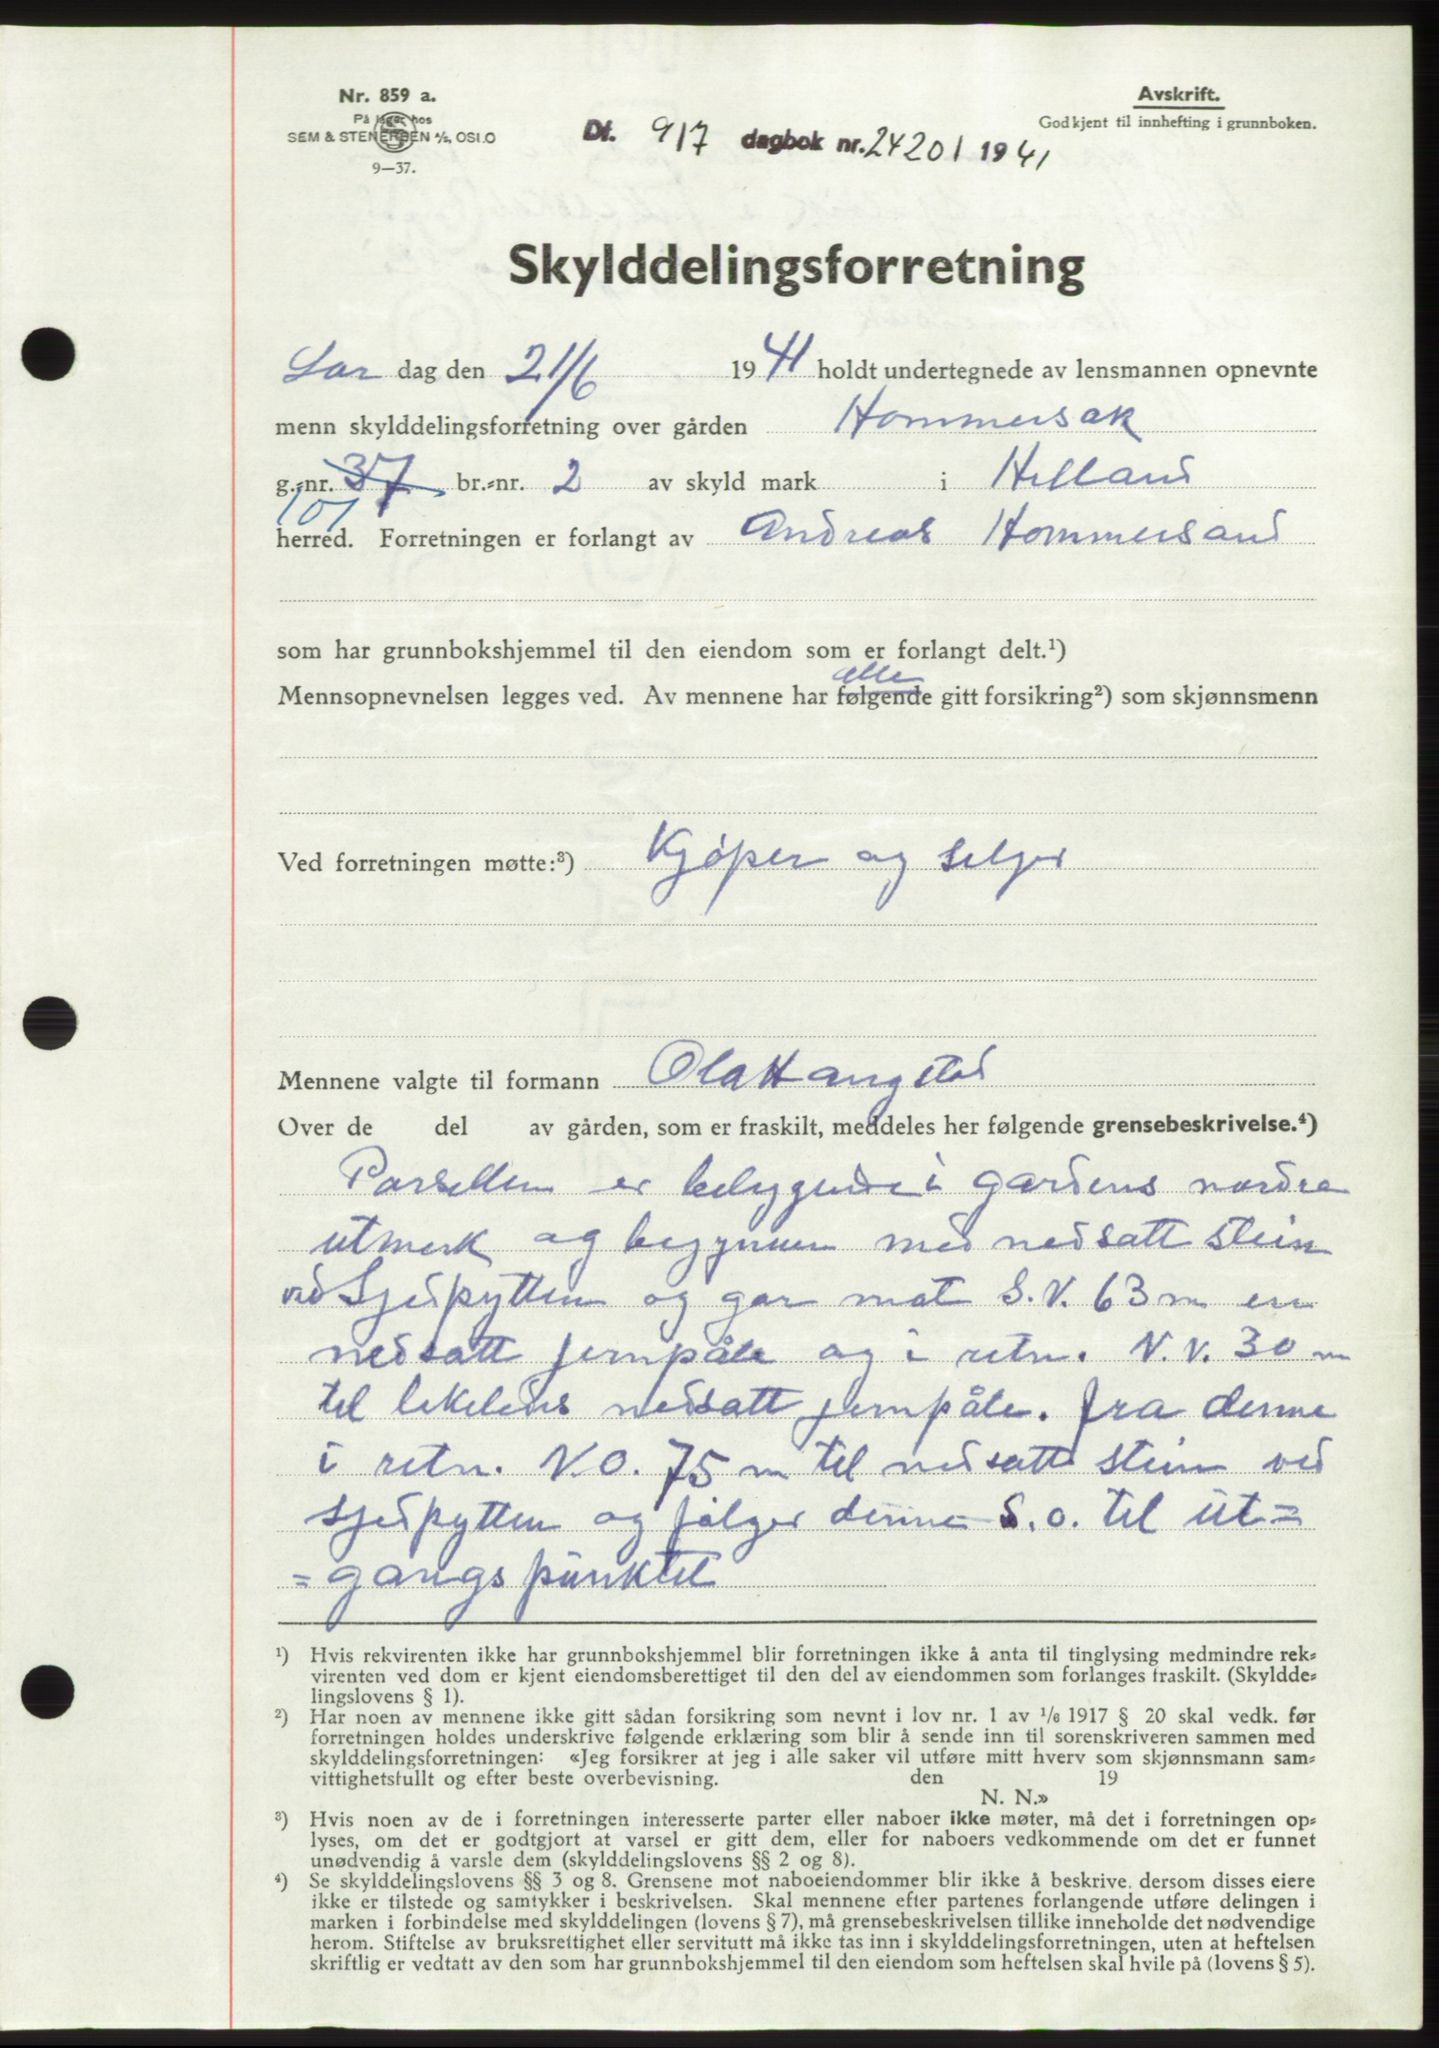 Nr. 859 a.
På lager hos
SEM & STENERSEN A/S, OSLO
9—37.
Avskrift.
Godkjent til innhefting i grunnboken.
Dt. 9/7 dagbok nr. 2420 / 1941
Skylddelingsforretning
Lør dag den 21/6 1941 holdt undertegnede av lensmannen opnevnte
menn skylddelingsforretning over gården Hommersak
g.-nr. 37 br.-nr. 2 av skyld mark i Hetland
101
herred. Forretningen er forlangt av Andreas Hommersand
som har grunnbokshjemmel til den eiendom som er forlangt delt.¹)
alle
Mennsopnevnelsen legges ved. Av mennene har følgende gitt forsikring²) som skjønnsmenn
Ved forretningen møtte:³) Kjøper og selger
Mennene valgte til formann Ola Haugstad
Over de del av gården, som er fraskilt, meddeles her følgende grensebeskrivelse.⁴)
Parsellen er beliggende i gardens nordre
utmark og begynner med nedsatt stein
ved Sjødpytten og går mot S.V. 63 m en
nedsatt jernpåle og i retn. N.V. 30 m
til likeledes nedsatt jernpåle. fra denne
i retn. N.O. 75 m til nedsatt stein ved
sjødpytten og følger denne S.O. til ut=
=gangspunktet
¹) Hvis rekvirenten ikke har grunnbokshjemmel blir forretningen ikke å anta til tinglysing medmindre rek-
virenten ved dom er kjent eiendomsberettiget til den del av eiendommen som forlanges fraskilt. (Skyldde-
lingslovens § 1).
²) Har noen av mennene ikke gitt sådan forsikring som nevnt i lov nr. 1 av ¹/₆ 1917 § 20 skal vedk. før
forretningen holdes underskrive følgende erklæring som blir å sende inn til sorenskriveren sammen med
skylddelingsforretningen: «Jeg forsikrer at jeg i alle saker vil utføre mitt hverv som skjønnsmann sam-
vittighetsfullt og efter beste overbevisning. den 19
N. N.»
³) Hvis noen av de i forretningen interesserte parter eller naboer ikke møter, må det i forretningen op-
lyses, om det er godtgjort at varsel er gitt dem, eller for naboers vedkommende om det er funnet
unødvendig å varsle dem (skylddelingslovens §§ 2 og 8).
⁴) Se skylddelingslovens §§ 3 og 8. Grensene mot naboeiendommer blir ikke å beskrive, dersom disses eiere
ikke er tilstede og samtykker i beskrivelsen. Skal mennene efter partenes forlangende utføre delingen i
marken i forbindelse med skylddelingen (lovens § 7), må grensebeskrivelsen tillike inneholde det nødvendige
herom. Stiftelse av bruksrettighet eller servitutt må ikke tas inn i skylddelingsforretningen, uten at heftelsen
skriftlig er vedtatt av den som har grunnbokshjemmel til den eiendom som heftelsen skal hvile på (lovens § 5).